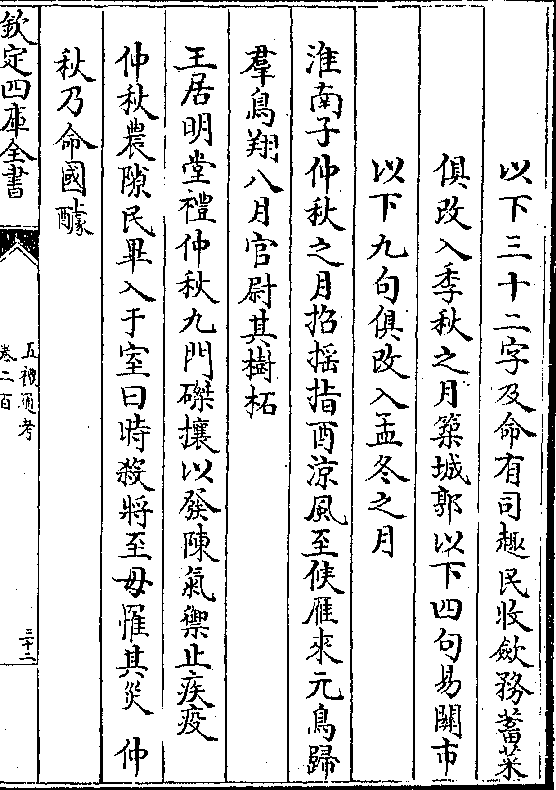 以下三十二字及命有司趣民收斂務蓄菜
俱改入季秋之月築城郭以下四句易關市
以下九句俱改入孟冬之月
淮南子仲秋之月招搖指酉涼風至候雁來元鳥歸
羣鳥翔八月官尉其樹柘
王居明堂禮仲秋九門磔攘以發陳氣禦止疾疫
仲秋農隙民畢入于室曰時殺將至毋罹其災 仲
秋乃命國醵
欽定四庫全書
五禮通考
卷二百
三十二